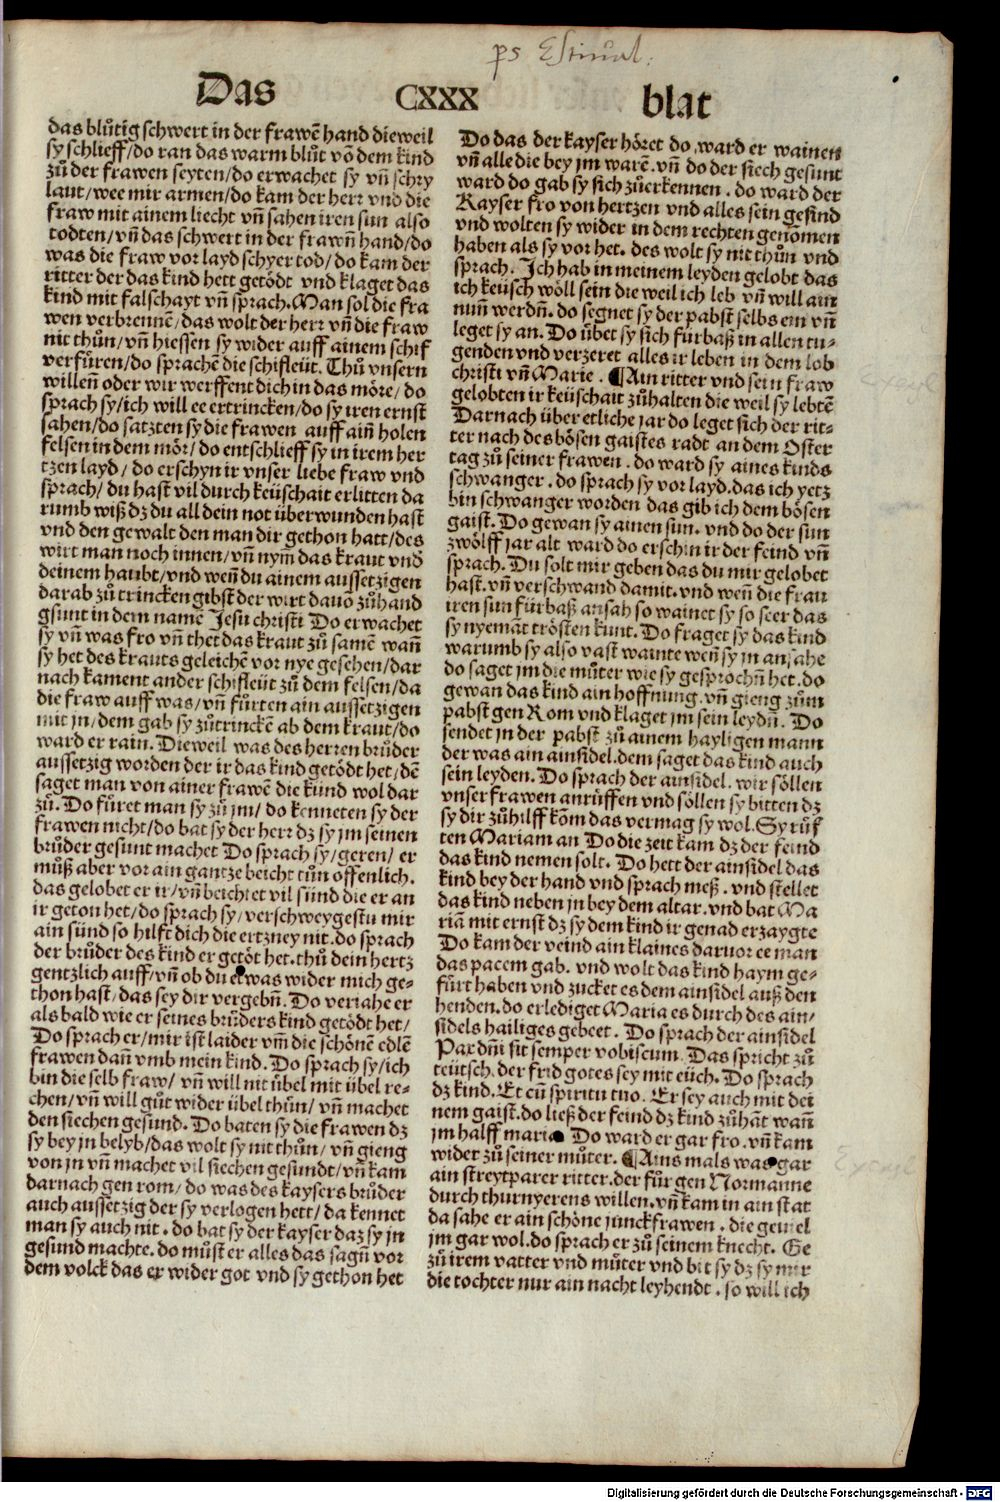 ps Estiual:
Das CXXX blat
das blůtig schwert in der frawē hand dieweil
sy schlieff/do ran das warm blůt vō dem kind
zů der frawen seyten/do erwachet sy vñ schry
laut/wee mir armen/do kam der herr vnd die
fraw mit ainem liecht vñ sahen iren sun also
todten/vñ das schwert in der frawñ hand/do
was die fraw vor layd schyer tod/do kam der
ritter der das kind hett getödt vnd klaget das
kind mit falschayt vñ sprach. Man sol die fra
wen verbrennē/das wolt der herr vñ die fraw
nit thůn/vñ hiessen sy wider auff ainem schif
verfüren/do sprachē die schifleüt. Thů vnsern
willeñ oder wir werffent dich in das möre/do
sprach sy/ich will ee ertrincken/do sy iren ernst
sahen/do satzten sy die frawen auff aiñ holen
felsen in dem mör/do entschlieff sy in irem her
tzen layd/do erschyn ir vnser liebe fraw vnd
sprach/du hast vil durch keüschait erlitten da
rumb wiß dz du all dein not überwunden hast
vnd den gewalt den man dir gethon hatt/des
wirt man noch innen/vñ nym̄ das kraut vnd
deinem haubt/vnd weñ du ainem aussetzigen
darab zů trincken gibst der wirt dauō zůhand
gsunt in dem namē Jesu christi Do erwachet
sy vñ was fro vñ thet das kraut zů samē wañ
sy het des krauts geleichē vor nye gesehen/dar
nach kament ander schifleüt zů dem felsen/da
die fraw auff was/vñ fürten ain aussetzigen
mit jn/dem gab sy zůtrinckē ab dem kraut/do
ward er rain. Dieweil was des herren brůder
aussetzig worden der ir das kind getödt het/dē
saget man von ainer frawē die kund wol dar
zů. Do füret man sy zů jm/do kenneten sy der
frawen nicht/do bat sy der herr dz sy jm seinen
brůder gesunt machet Do sprach sy/geren/er
můß aber vor ain gantze beicht tůn offenlich.
das gelobet er ir/vñ beichtet vil sünd die er an
ir geton het/do sprach sy/verschweygestu mir
ain sünd so hilft dich die ertzney nit. do sprach
der brůder des kind er getöt het. thů dein hertz
gentzlich auff/vñ ob du etwas wider mich ge-
thon hast/das sey dir vergebñ. Do veriahe er
als bald wie er seines brůders kind getödt het/
Do sprach er/mir ist laider vm̄ die schönē edlē
frawen dañ vmb mein kind. Do sprach sy/ich
bin die selb fraw/vñ will nit übel mit übel re-
chen/vñ will gůt wider übel thůn/vñ machet
den siechen gesund. Do baten sy die frawen dz
sy bey jn belyb/das wolt sy nit thůn/vñ gieng
von jn vñ machet vil siechen gesundt/vñ kam
darnach gen rom/do was des kaysers brůder
auch aussetzig der sy verlogen hett/da kennet
man sy auch nit. do bat sy der kayser daz sy jn
gesund machte. do můst er alles das sagñ vor
dem volck das er wider got vnd sy gethon het
Do das der kayser höret do ward er wainen
vñ alle die bey jm warē. vñ do der siech gesunt
ward do gab sy sich zůerkennen. do ward der
Kayser fro von hertzen vnd alles sein gesind
vnd wolten sy wider in dem rechten genōmen
haben als sy vor het. des wolt sy nit thůn vnd
sprach. Ich hab in meinem leyden gelobt das
ich keüsch wöll sein die weil ich leb vñ will ain
nuñ werdñ. do segnet sy der pabst selbs ein vñ
leget sy an. Do übet sy sich fürbaß in allen tu-
genden vnd verzeret alles ir leben in dem lob
christi vñ Marie. ¶Ain ritter vnd sein fraw
gelobten ir keüschait zůhalten die weil sy lebtē
Darnach über etliche jar do leget sich der rit-
ter nach des bösen gaistes radt an dem Oster
tag zů seiner frawen. do ward sy aines kinds
schwanger. do sprach sy vor layd. das ich yetz
bin schwanger worden das gib ich dem bösen
gaist. Do gewan sy ainen sun. vnd do der sun
zwölff jar alt ward do erschin ir der feind vñ
sprach. Du solt mir geben das du mir gelobet
hast. vñ verschwand damit. vnd weñ die frau
iren sun fürbaß ansah so wainet sy so seer das
sy nyemāt trösten kunt. Do fraget sy das kind
warumb sy also vast wainte weñ sy jn ansahe
do saget jm die můter wie sy gesprochñ het. do
gewan das kind ain hoffnung. vñ gieng zům
pabst gen Rom vnd klaget jm sein leydñ. Do
sendet jn der pabst zů ainem hayligen mann
der was ain ainsidel. dem saget das kind auch
sein leyden. Do sprach der ainsidel. wir söllen
vnser frawen anrüffen vnd söllen sy bitten dz
sy dir zůhilff kōm das vermag sy wol. Sy růf
ten Mariam an Do die zeit kam dz der feind
das kind nemen solt. Do hett der ainsidel das
kind bey der hand vnd sprach meß. vnd stellet
das kind neben jn bey dem altar. vnd bat Ma
riā mit ernst dz sy dem kind ir genad erzaygte
Do kam der veind ain klaines daruor ee man
das pacem gab. vnd wolt das kind haym ge-
fürt haben vnd zucket es dem ainsidel auß den
henden. do erlediget Maria es durch des ain-
sidels hailiges gebeet. Do sprach der ainsidel
Pax dñi sit semper vobiscum. Das spricht zů
teütsch. der frid gotes sey mit eüch. Do sprach
dz kind. Et cū spiritu tuo. Er sey auch mit dei
nem gaist. do ließ der feind dz kind zůhāt wañ
jm halff maria Do ward er gar fro. vñ kam
wider zů seiner můter. ¶Ains mals was gar
ain streytparer ritter. der für gen Normanne
durch thurnyerens willen. vñ kam in ain stat
da sahe er ain schöne junckfrawen. die geuiel
jm gar wol. do sprach er zů seinem knecht. Ge
zů irem vatter vnd můter vnd bit sy dz sy mir
die tochter nur ain nacht leyhendt. so will ich
Digitalisierung gefördert durch die Deutsche Forschungsgemeinschaft - DFG